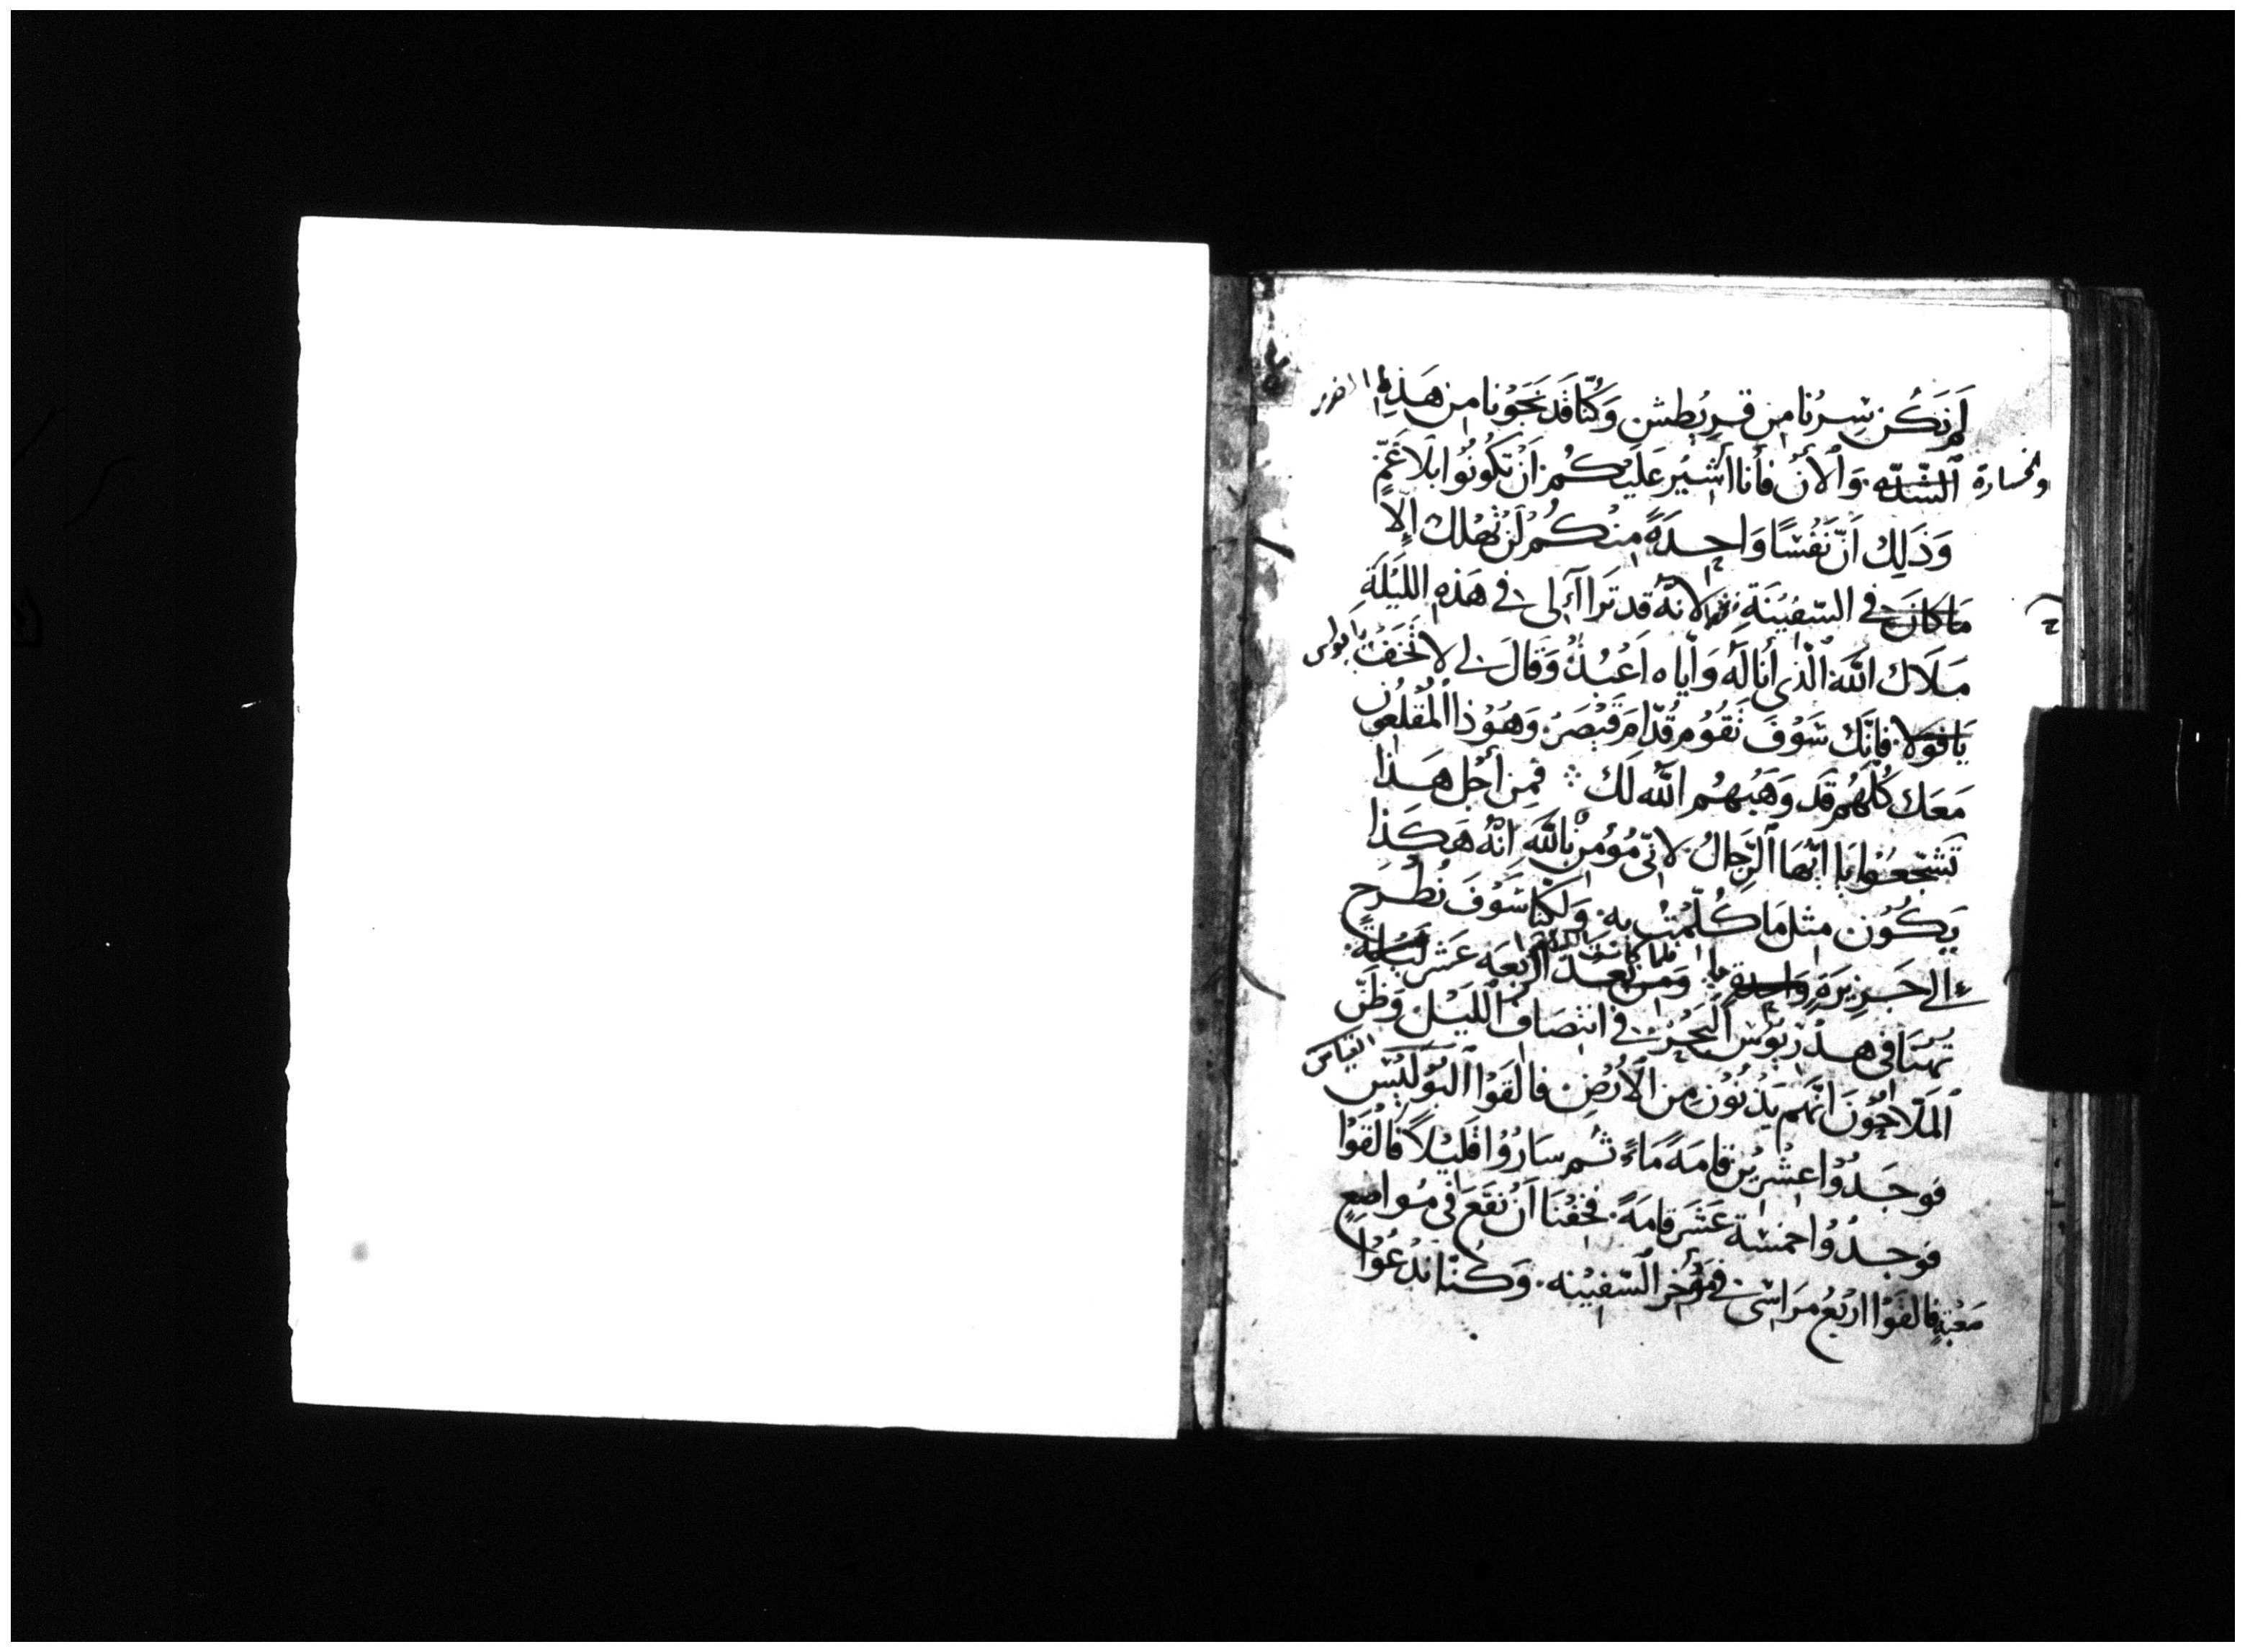 لَمْ نَكُن سِرْنَا مِن قرِيْطِش وَكُنّا قَد نَجَوْنا مِن هَذِهِ الضرر
والخسارة الشّدّه. وَالأنْ فأنا أشيْر عَلَيْكُم اَنْ تكُونُوا بلَا غَمٍّ
وَذَلِكَ اَنّ نَفْسًا وَاحِدَةً مِنْكُم لَنْ تهْلك اِلّا
مَا كانَ في السّفيْنَةِ لانهُ قد تَراآءَ لى في هَذهِ اللّيْلَة
مَلَاك اللّه الّذى أنا لَهُ وَاْياه اَعْبُدُ وَقَالَ لى لا تَخَفْ يا بولس
يَا فَوْلا. فإنّك سَوْفَ تَقُومُ قُدّامَ قَيْصَرَ وَهُوَذا المُقْلعُون
مَعَك كُلّهُم قَد وَهَبَهُم اللّه لَك ∴ فَمِن أجْل هَذا
تَشَجّعَوْا يَا ايّهَا الرّجالُ. لانّى مُؤْمِنْ باللّهِ انّهُ هَكَذا
يَكُوْن مثل مَا كُلّمْتُ بِهِ. وَلَكِنّا سَوْفَ نُطْرَح
الى جَزِيْرَةٍ وَاحِدَةٍ ما. فلما كانت وَمن بَعْد الأربَعَه عَشَر لَيْلَة
تهْنَا في هدْريُوس البَحْر. في انتصَاف اللّيْل وَظَنّ
المَلّاحُوْنَ انّهُم يَدْنُوْن مِن الأرْضِ فالقَوْا البُوْلَيْسَ القياس
فوجَدُوْا عشْريْن قامَةً مَاءً ثُم سَارُوْا قَليْلاً فَالقَوْا
فوجدُوُا خمْسَة عَشَر قامَةً. فخفْنَا اَنْ نَقَعَ في مواضِعٍ
صَعْبَةٍ فالقَوْا اربَعُ مرَاسى في مُؤَخّر السّفيْنه. وَكُنّا نَدْعُوْا